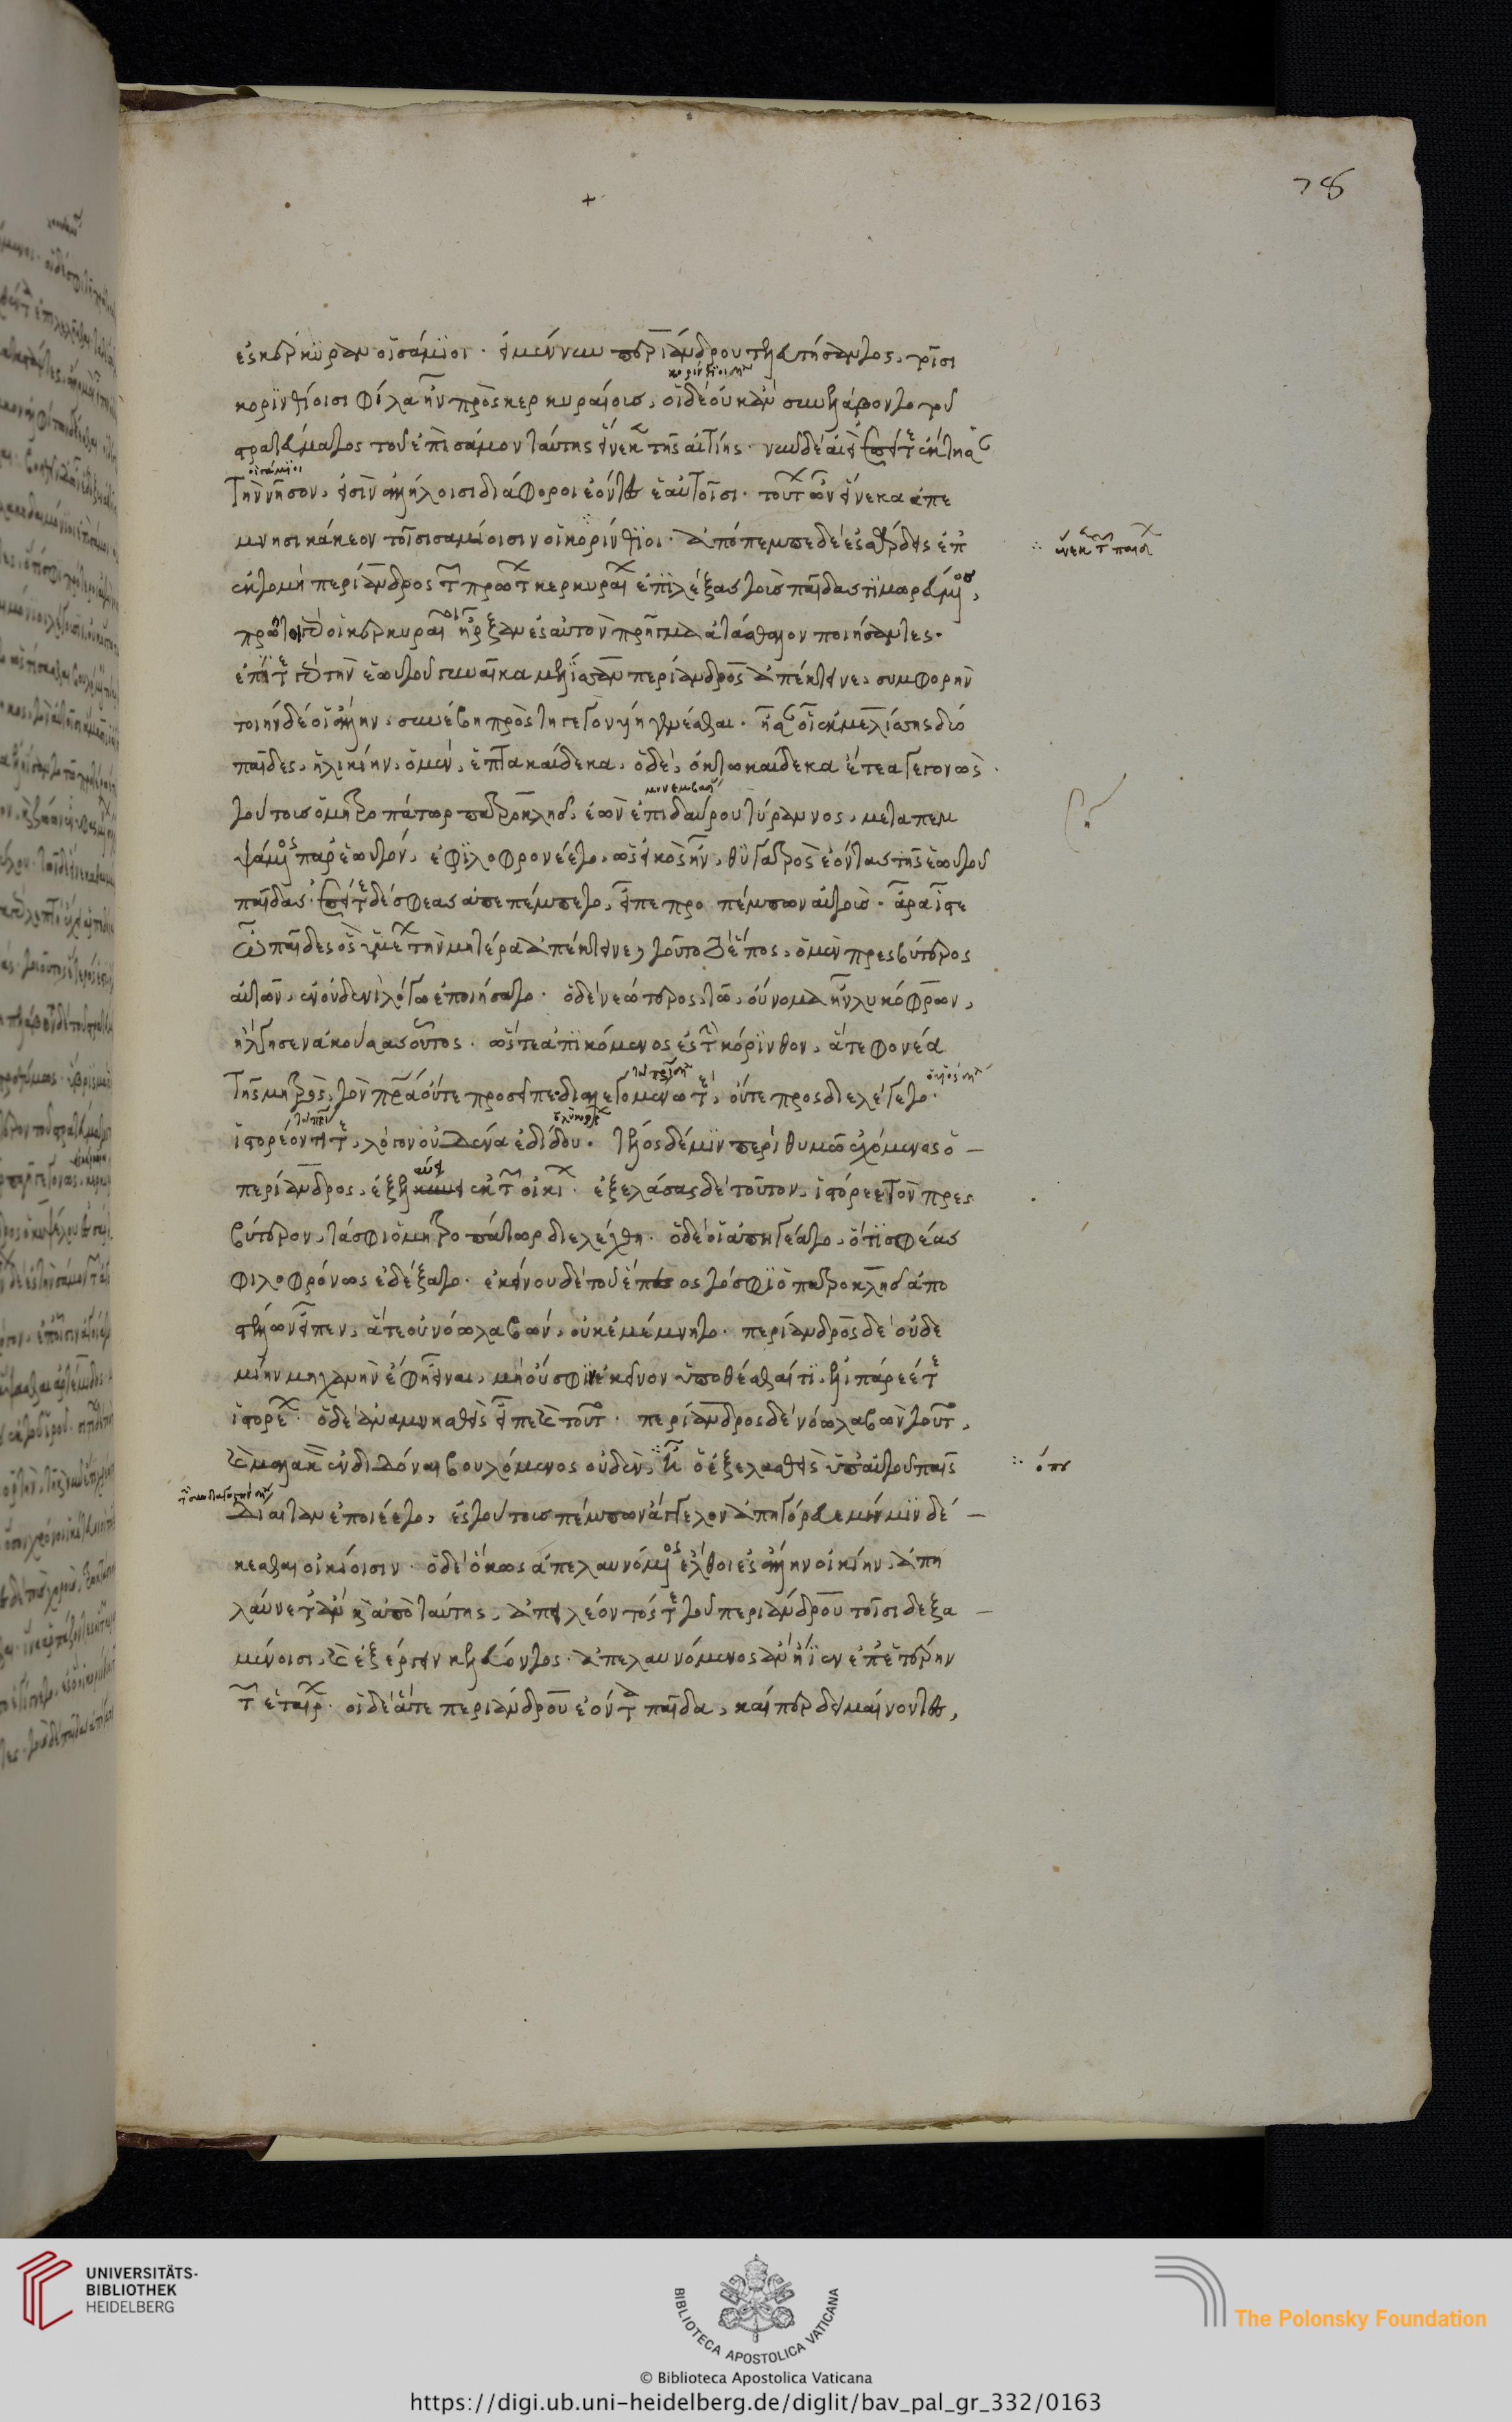 78
ἐς κερκύραν οἱ σάμιοι. εἰ μέν νυν περιάνδρου τελευτήσαντος, τοῖσι
κορινθίοισι φίλα ἦν πρὸς κερκυραίους, οἱ δὲ οὐκ ἂν συνελάβοντο τοῦ
στρατεύματος τοῦ ἐπὶ σάμον ταύτης εἵνεκεν τῆς αἰτίης. νῦν δὲ αἰεὶ ἐπεί τε ἔκτισαν
οἱ σάμιοι
τὴν νῆσον, εἰσὶν ἀλλήλοισι διάφοροι ἐόντες ἑαυτοῖσι. τούτων ὦν εἵνεκα ἀπε
μνησικάκεον τοῖσι σαμίοισιν οἱ κορίνθιοι. ἀπόπεμπε δὲ ἐς σάρδεις ἐπ
ἐκτομῇ περίανδρος τῶν πρώτων κερκυραίων ἐπιλέξας τοὺς παῖδας τιμωρεύμενος,
πρότεροι γὰρ οἱ κερκυραῖοι ἦρξαν ἐς αὐτὸν πρῆγμα ἀτάσθαλον ποιήσαντες.
ἐπεί τε γὰρ τὴν ἑωυτοῦ γυναῖκα μέλισσαν περίανδρος ἀπέκτεινε, συμφορὴν
τοιήνδε οἱ ἄλλην, συνέβη πρὸς τῇ γεγονυίῃ γενέσθαι. ἦσαν οἱ ἐκ μελίσσης δύο
παῖδες, ἡλικίην, ὁ μὲν, ἑπτακαίδεκα, ὁ δὲ, ὀκτωκαίδεκα ἔτεα γεγονὼς.
τούτους ὁ μητροπάτωρ πατροκλῆς, ἐὼν ἐπιδαύρου τύραννος, μεταπεμ
ψάμενος παρ ἑωυτὸν, ἐφιλοφρονέετο, ὡς εἰκὸς ἦν, θυγατρὸς ἐόντας τῆς ἑωυτοῦ
παῖδας. ἐπεί τε δέ σφεας ἀπεπέμπετο, εἶπε προπέμπων αὐτούς. ἆρα ἴστε
ὦ παῖδες ὃς ὑμέων τὴν μητέρα ἀπέκτεινε, τοῦτο τὸ ἔπος, ὁ μὲν πρεσβύτερος
αὐτῶν, ἐν οὐδενὶ λόγω ἐποιήσατο. ὁ δὲ νεώτερος, τῶ, οὔνομα ἦν λυκόφρων,
ἤλγησεν ἀκούσας οὕτως. ὥστε ἀπικόμενος ἐς τὴν κόρινθον, ἅτε φονέα
τῆς μητρὸς, τὸν πατέρα οὔτε προσεῖπε διαλεγομένω τε, οὔτε προσδιελέγετο.
ἱστορέοντί τε, λόγον οὐδένα ἐδίδου. τέλος δέ μιν περὶ θυμῶ ἐχόμενος ὁ
περίανδρος, ἐξελαύνει ἐκ τῶν οἰκίων. ἐξελάσας δὲ τοῦτον, ἱστόρεε τὸν πρεσ
βύτερον, τά σφι ὁ μητροπάτωρ διελέχθη. ὁ δέ οἱ ἀπηγέατο, ὅτι σφέας
φιλοφρόνως ἐδέξατο. ἐκείνου δὲ τοῦ ἔπεος τό σφι ὁ πατροκλῆς ἀπο
στέλλων εἶπεν, ἅτε οὐ νόω λαβὼν, οὐκ ἐμέμνητο. περίανδρος δὲ οὐδε
μίην μηχανὴν ἔφη εἶναι, μὴ οὔ σφιν ἐκεῖνον ὑποθέσθαι τι, ἐλιπάρεέ τε
ἱστορέων. ὁ δὲ ἀναμνησθεὶς εἶπε καὶ τοῦτο. περίανδρος δὲ νόω λαβὼν τοῦτο,
καὶ μαλακὸν ἐνδιδόναι βουλόμενος οὐδὲν, τῆ ὁ ἐξελασθεὶς ὑπ αὐτοῦ παῖς
ὅπου
δίαιταν ἐποιέετο, ἐς τούτους πέμπων ἄγγελον ἀπηγόρευε μή μιν δέ
κεσθαι οἰκίοισιν. ὁ δὲ ὅκως ἀπελαυνόμενος ἔλθοι ἐς ἄλλην οἰκίην, ἀπη
λαύνετ ἂν καὶ ἀπὸ ταύτης, ἀπειλέοντός τε τοῦ περιάνδρου τοῖσι δεξα
μένοισι, καὶ ἐξέργειν κελεύοντος. ἀπελαυνόμενος ἂν ἤιεν ἐπ ἑτέρην
τῶν ἑταίρων. οἱ δὲ ἅτε περιάνδρου ἐόντα παῖδα, καίπερ δειμαίνοντες,
UNIVERSITÄTS-
BIBLIOTHEK
HEIDELBERG
BIBLIOTECA APOSTOLICA VATICANA
The Polonsky Foundation
© Biblioteca Apostolica Vaticana
https://digi.ub.uni-heidelberg.de/diglit/bav_pal_gr_332/0163